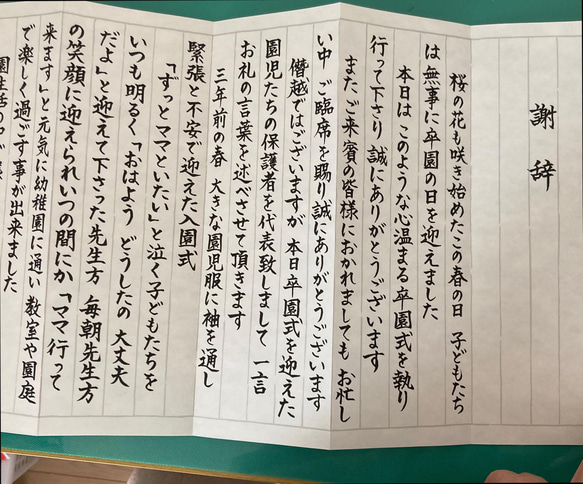 謝辞
桜の花も咲き始めたこの春の日 子どもたち
は無事に卒園の日を迎えました
本日は このような心温まる卒園式を執り
行って下さり 誠にありがとうございます
また ご来賓の皆様におかれましても お忙し
い中 ご臨席を賜り誠にありがとうございます
僭越ではございますが 本日卒園式を迎えた
園児たちの保護者を代表致しまして 一言
お礼の言葉を述べさせて頂きます
三年前の春 大きな園児服に袖を通し
緊張と不安で迎えた入園式
「ずっとママといたい」と泣く子どもたちを
いつも明るく「おはよう どうしたの 大丈夫
だよ」と迎えて下さった先生方 毎朝先生方
の笑顔に迎えられいつの間にか「ママ行って
来ます」と元気に幼稚園に通い 教室や園庭
で楽しく過ごす事が出来ました
園生活の中で